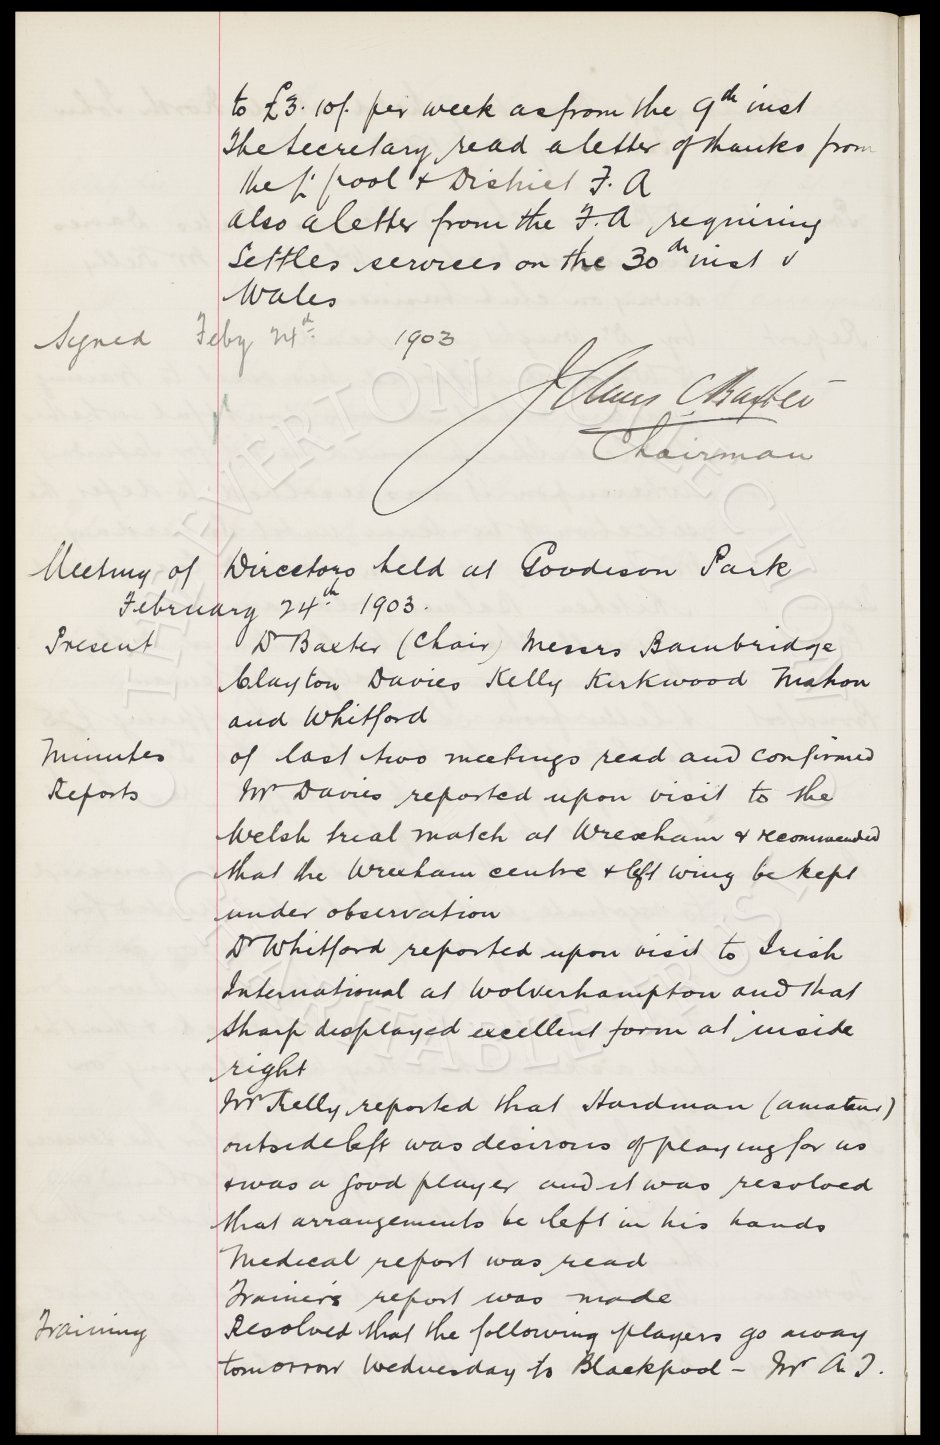 to £3. 10/. per week as from the 9th inst
The Secretary read a letter of thanks from
the L'pool & District F. A
also a letter from the F. A requiring
Settles services on the 30th inst v
Wales
Signed Feby 24th 1903
James C Baxter
Chairman
Meeting of Directors held at Goodison Park
February 24th 1903.
Present Dr Baxter (Chair) Messrs Bainbridge
Clayton Davies Kelly Kirkwood Mahon
and Whitford
Minutes of last two meetings read and confirmed
Reports Mr Davies reported upon visit to the
Welsh trial match at Wrexham & recommended
that the Wrexham centre & left wing be kept
under observation
Dr Whitford reported upon visit to Irish
International at Wolverhampton and that
Sharp displayed excellent form at inside
right
Mr Kelly reported that Hardman (amateur)
outside left was desirous of playing for us
& was a good player and it was resolved
that arrangements be left in his hands
Medical report was read
Trainers report was made
Training Resolved that the following players go away
tomorrow Wednesday to Blackpool – Mr A. J.
THE EVERTON COLLECTION
CHARITABLE TRUST